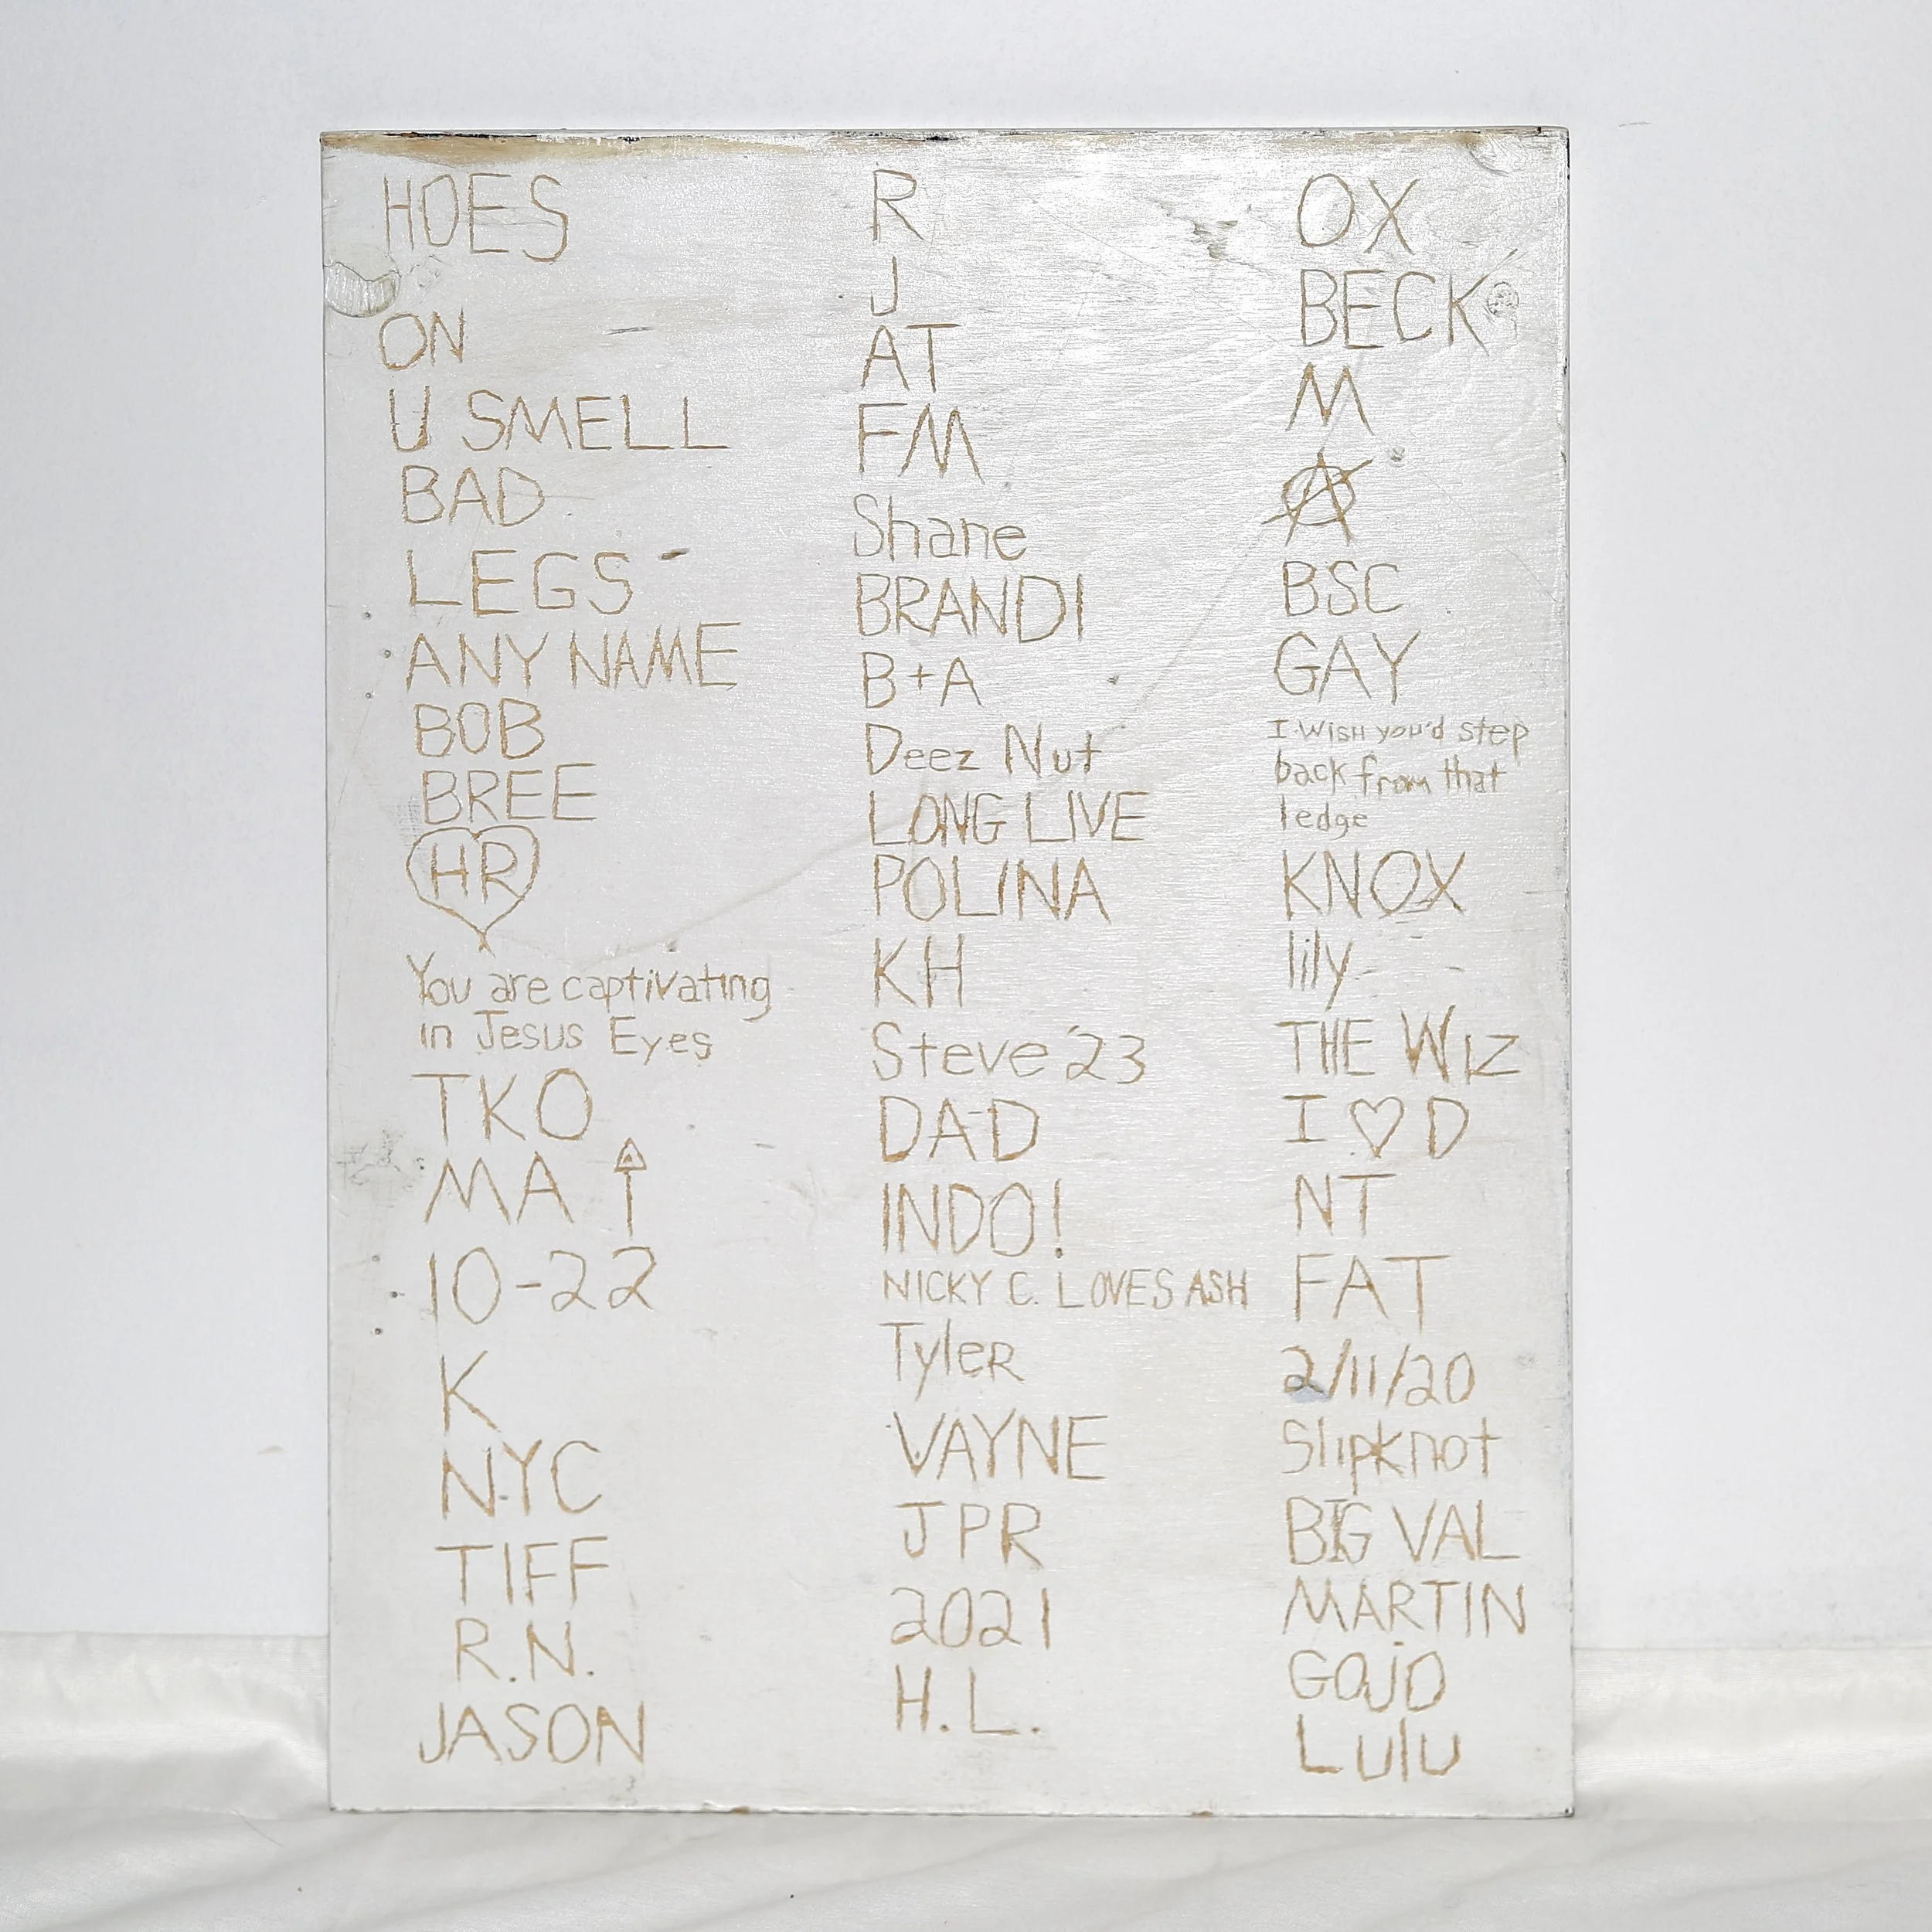 HOES
ON
U SMELL
BAD
LEGS
ANY NAME
BOB
BREE
HR
You are captivating
in Jesus Eyes
TKO
MA ↑
10-22
K
NYC
TIFF
R.N.
JASON
R
J
AT
FM
Shane
BRANDI
B+A
Deez Nut
LONG LIVE
POLINA
KH
Steve '23
DAD
INDO!
NICKY C. LOVES ASH
TyleR
VAYNE
JPR
2021
H.L.
OX
BECK
M
A
BSC
GAY
I WISH you'd step
back from that
ledge
KNOX
lily
THE WIZ
I ♡ D
NT
FAT
2/11/20
Slipknot
BIG VAL
MARTIN
GOJO
Lulu